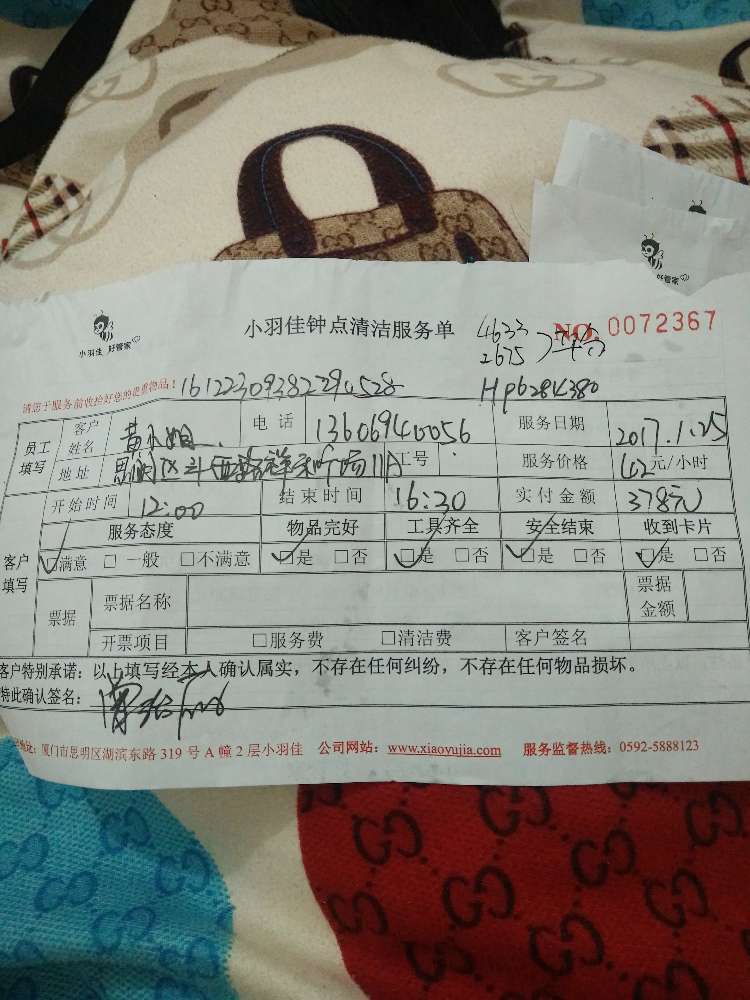 小羽佳 好管家
好管家
小羽佳钟点清洁服务单
4633
2675
NO. 0072367
请您于服务前收拾好您的贵重物品!
1612230938229
4528
Hp6284380
员工填写
客户姓名 黄小姐 电话 13606940056 服务日期 2017.1.25
地址 思明区 11A 工号 服务价格 42元/小时
开始时间 12:00 结束时间 16:30 实付金额 378元
客户填写
服务态度 物品完好 工具齐全 安全结束 收到卡片
☑满意 □一般 □不满意 ☑是 □否 ☑是 □否 ☑是 □否 ☑是 □否
票据 票据名称 票据金额
开票项目 □服务费 □清洁费 客户签名
客户特别承诺:以上填写经本人确认属实,不存在任何纠纷,不存在任何物品损坏。
特此确认签名:
地址:厦门市思明区湖滨东路 319 号 A 幢 2 层小羽佳 公司网站:www.xiaoyujia.com 服务监督热线:0592-5888123